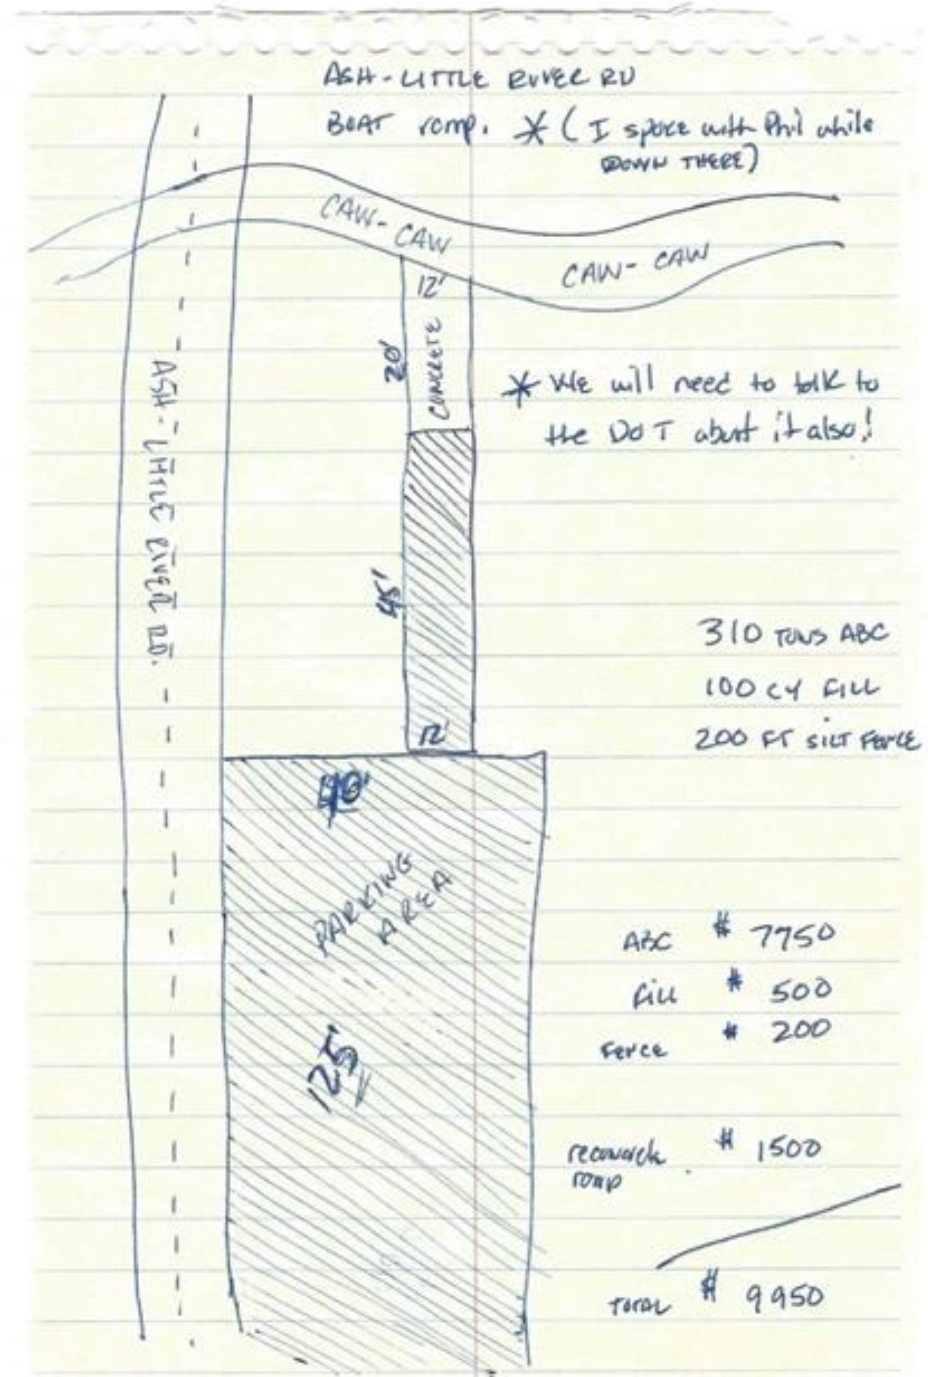 ASH-LITTLE RIVER RD
BOAT ramp. * (I spoke with Phil while
DOWN THERE)
CAW-CAW
CAW-CAW
12'
20'
CONCRETE
* We will need to talk to
the DOT about it also!
ASH-LITTLE RIVER RD.
45'
12'
310 TONS ABC
100 CY FILL
200 FT SILT FENCE
40'
PARKING
AREA
125'
ABC $ 7750
Fill $ 500
Fence $ 200
ramp $ 1500
TOTAL $ 9950